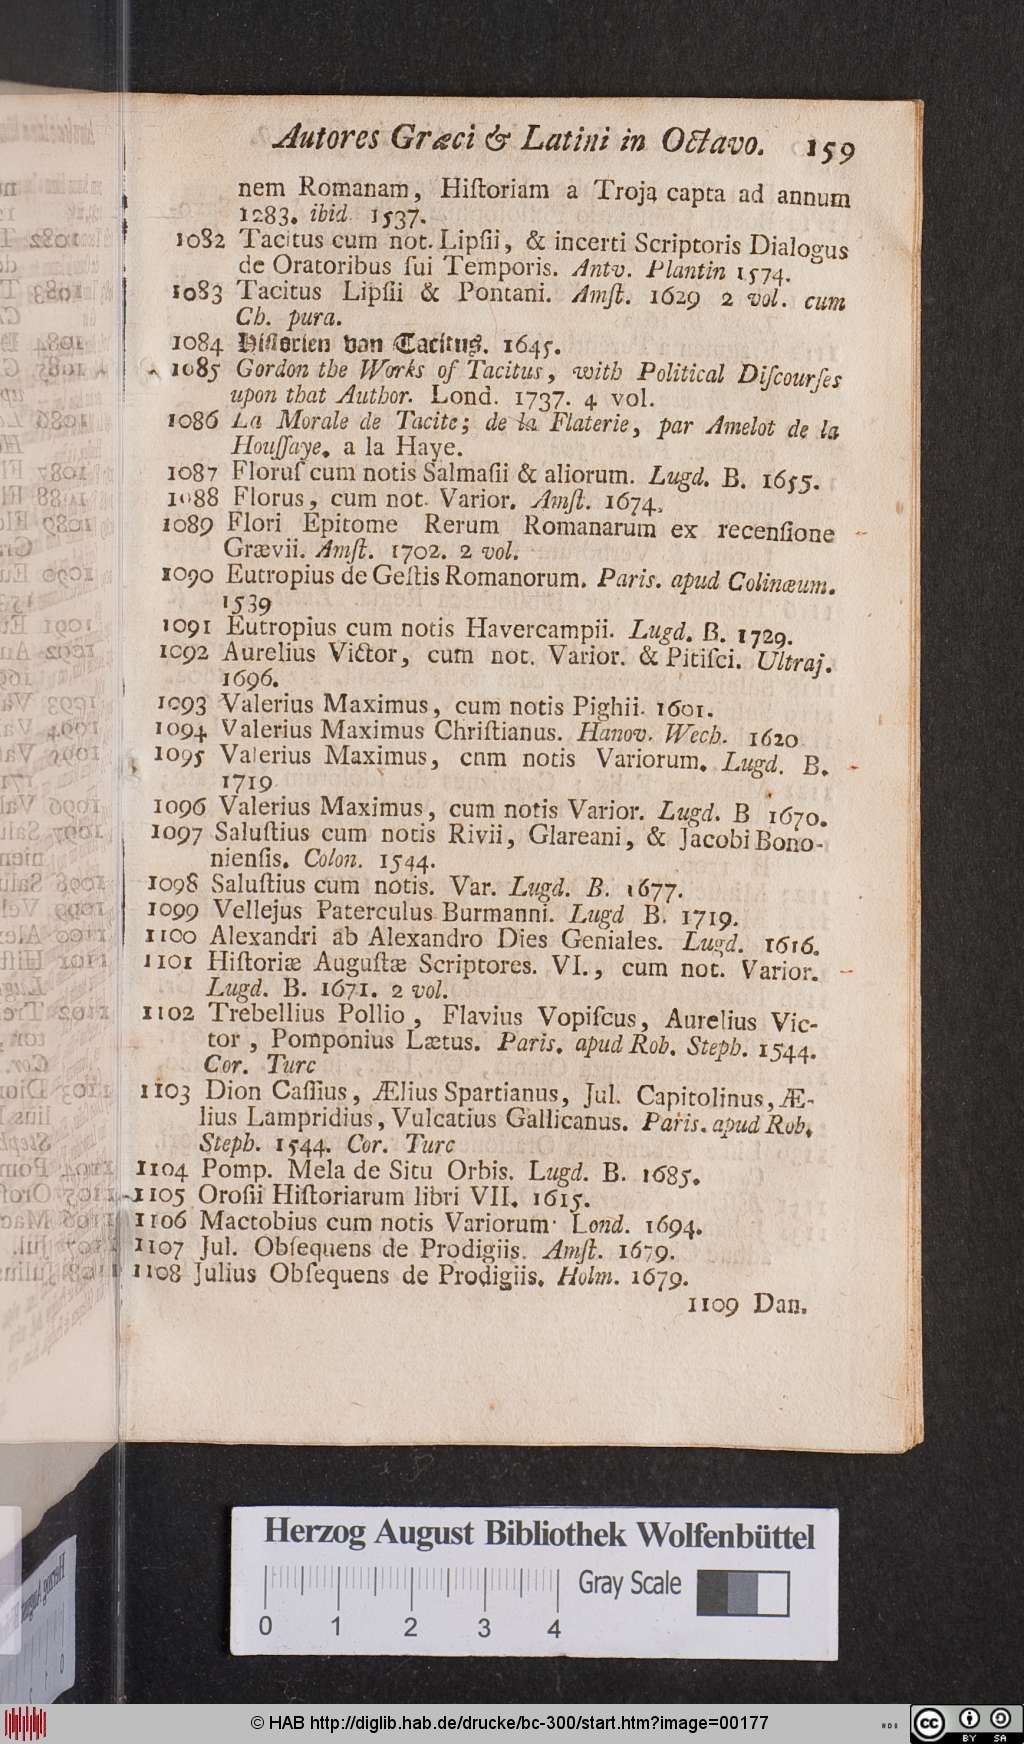 Autores Græci & Latini in Octavo. 159
nem Romanam, Hiſtoriam a Troja capta ad annum
1283. ibid 1537.
1082 Tacitus cum not. Lipſii, & incerti Scriptoris Dialogus
de Oratoribus ſui Temporis. Antv. Plantin 1574.
1083 Tacitus Lipſii & Pontani. Amſt. 1629 2 vol. cum
Ch. pura.
1084 Hiſtorien van Tacitus. 1645.
1085 Gordon the Works of Tacitus, with Political Diſcourſes
upon that Author. Lond. 1737. 4 vol.
1086 La Morale de Tacite; de la Flaterie, par Amelot de la
Houſſaye. a la Haye.
1087 Floruſ cum notis Salmaſii & aliorum. Lugd. B. 1655.
1088 Florus, cum not. Varior. Amſt. 1674.
1089 Flori Epitome Rerum Romanarum ex recenſione
Grævii. Amſt. 1702. 2 vol.
1090 Eutropius de Geſtis Romanorum. Paris. apud Colinæum.
1539
1091 Eutropius cum notis Havercampii. Lugd. B. 1729.
1092 Aurelius Victor, cum not. Varior. & Pitiſci. Ultraj.
1696.
1093 Valerius Maximus, cum notis Pighii. 1601.
1094 Valerius Maximus Chriſtianus. Hanov. Wech. 1620
1095 Valerius Maximus, cnm notis Variorum. Lugd. B.
1719
1096 Valerius Maximus, cum notis Varior. Lugd. B 1670.
1097 Saluſtius cum notis Rivii, Glareani, & Jacobi Bono-
nienſis. Colon. 1544.
1098 Saluſtius cum notis. Var. Lugd. B. 1677.
1099 Vellejus Paterculus Burmanni. Lugd B. 1719.
1100 Alexandri ab Alexandro Dies Geniales. Lugd. 1616.
1101 Hiſtoriæ Auguſtæ Scriptores. VI., cum not. Varior.
Lugd. B. 1671. 2 vol.
1102 Trebellius Pollio, Flavius Vopiſcus, Aurelius Vic-
tor, Pomponius Lætus. Paris. apud Rob. Steph. 1544.
Cor. Turc
1103 Dion Caſſius, Ælius Spartianus, Jul. Capitolinus, Æ-
lius Lampridius, Vulcatius Gallicanus. Paris. apud Rob.
Steph. 1544. Cor. Turc
1104 Pomp. Mela de Situ Orbis. Lugd. B. 1685.
1105 Oroſii Hiſtoriarum libri VII. 1615.
1106 Mactobius cum notis Variorum. Lond. 1694.
1107 Jul. Obſequens de Prodigiis. Amſt. 1679.
1108 Julius Obſequens de Prodigiis. Holm. 1679.
1109 Dan.
Herzog August Bibliothek Wolfenbüttel
Gray Scale
0 1 2 3 4
© HAB http://diglib.hab.de/drucke/bc-300/start.htm?image=00177
cc BY SA